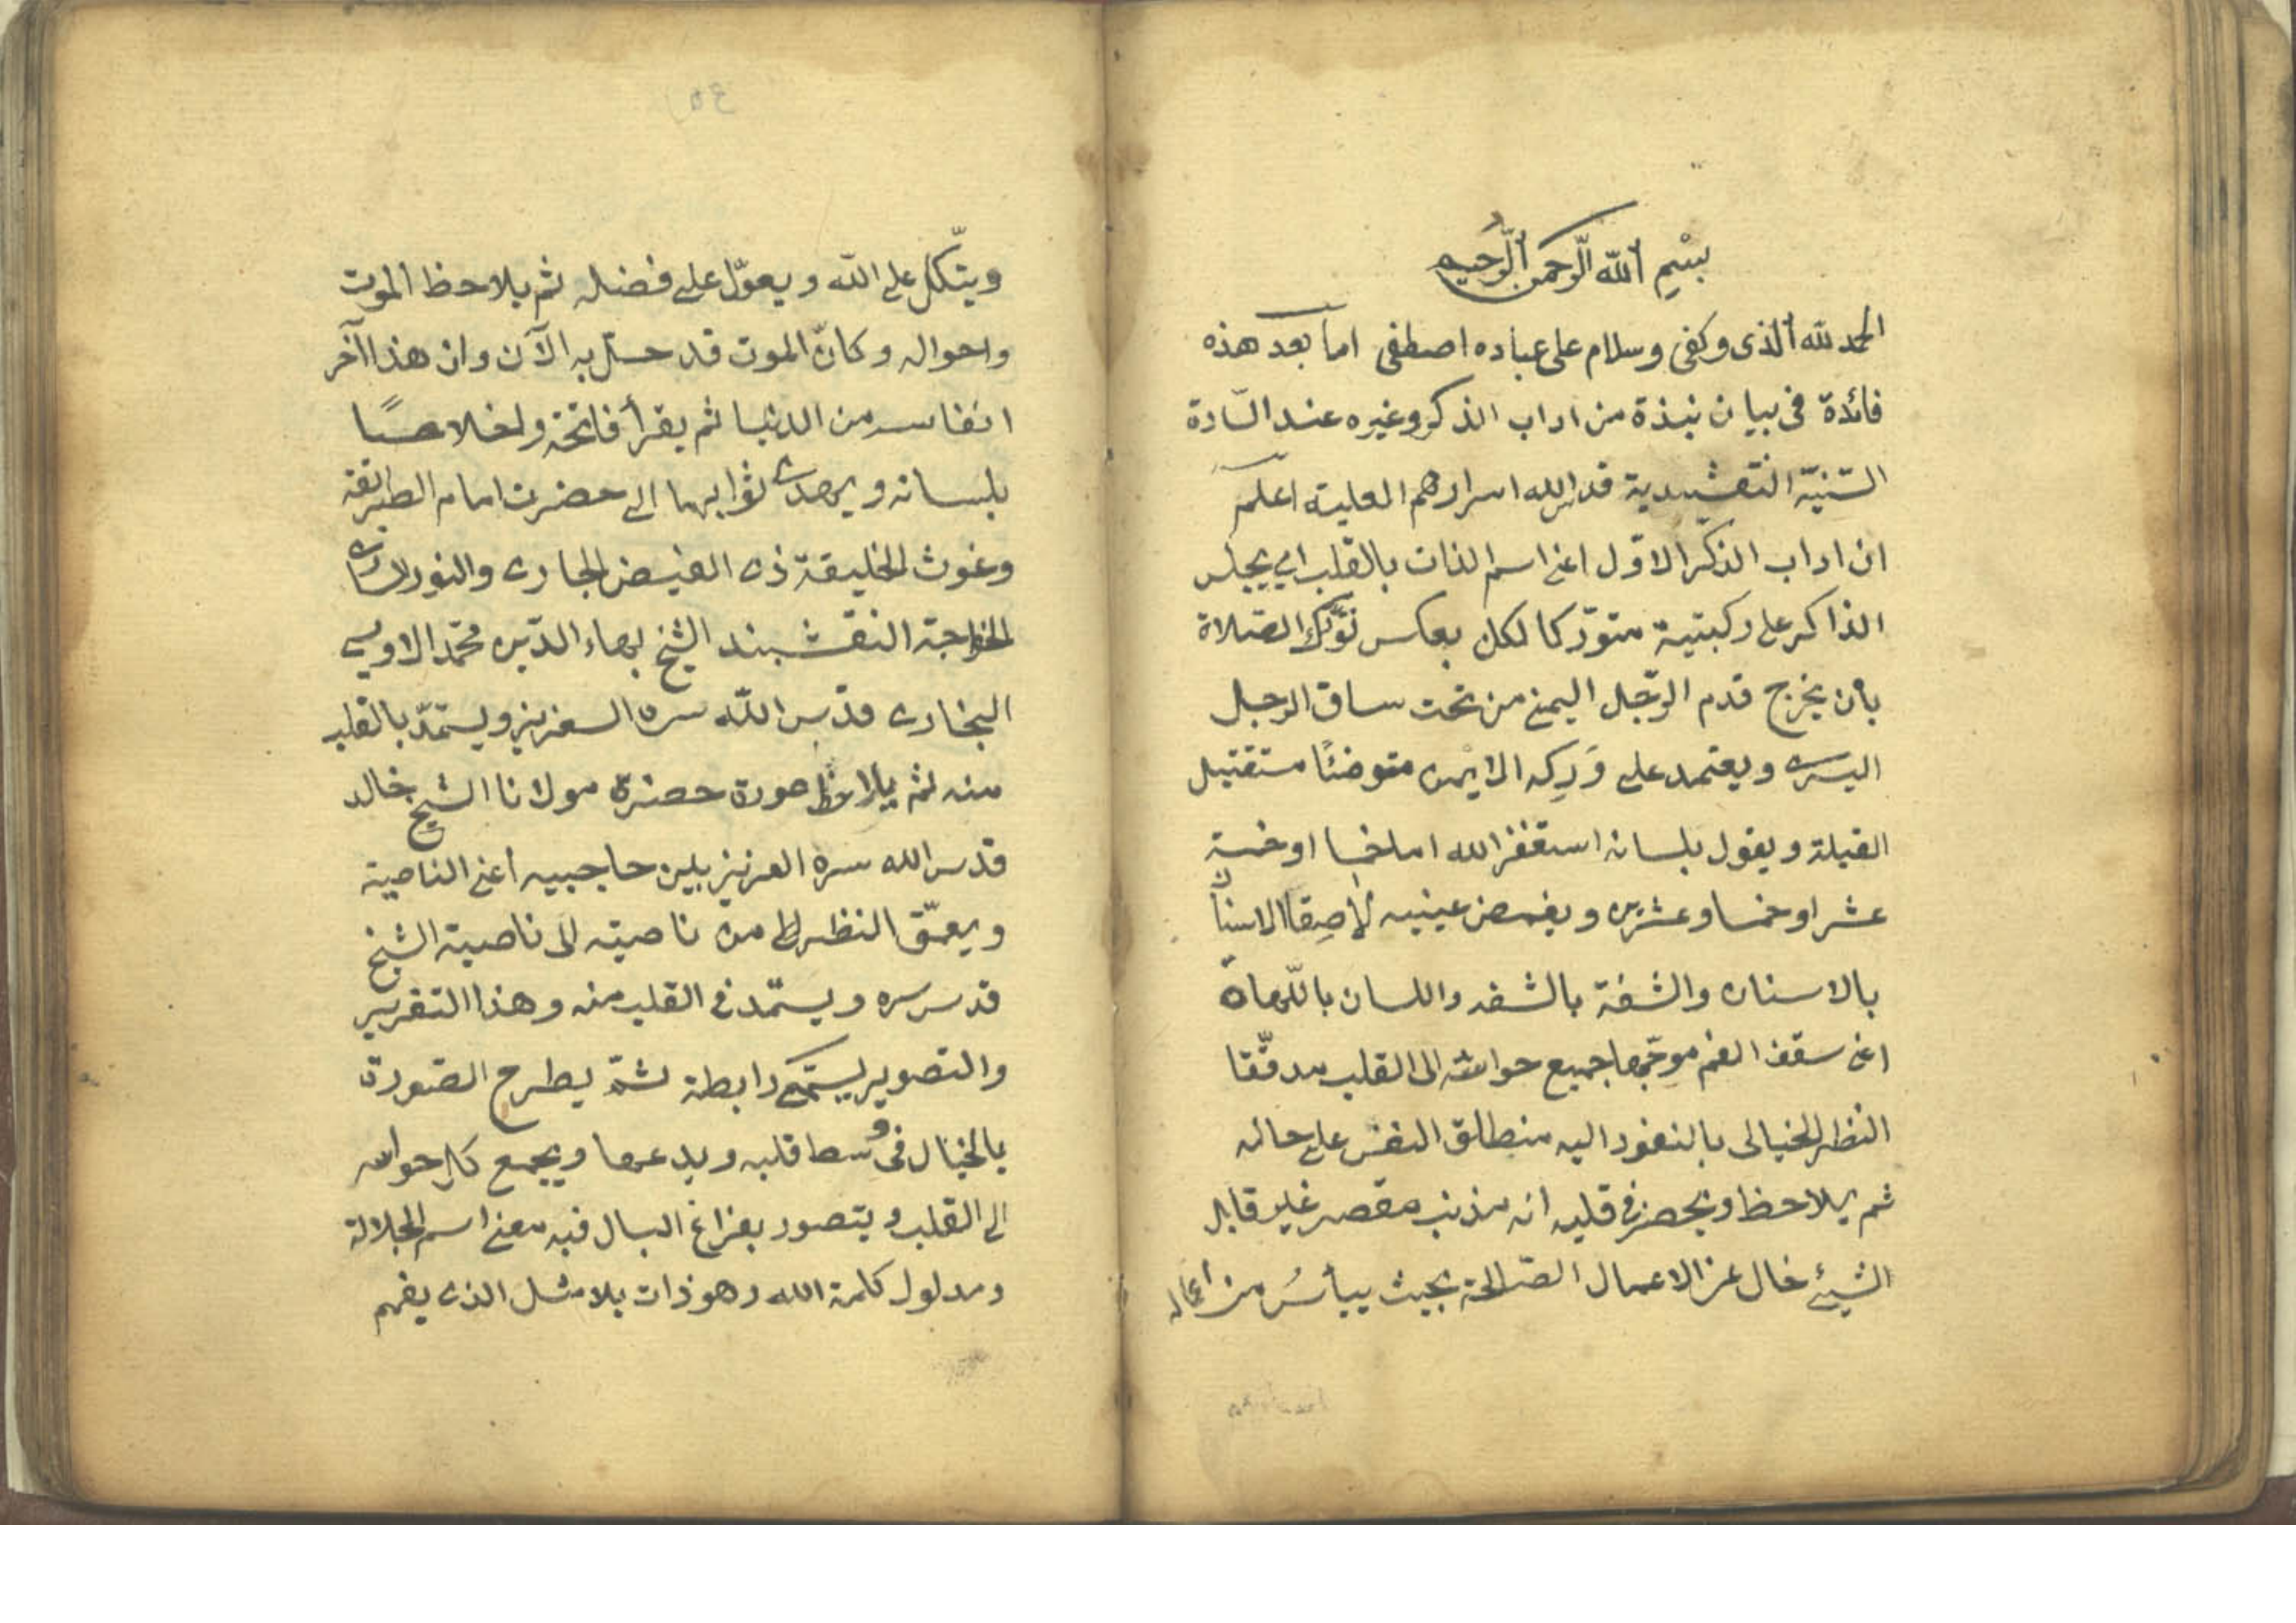 بسْمِ ٱللّه ٱلرّحمن ٱلرّحيم
الحمد لله ٱلذى وكفى وسلام على عباده اصطفى اما بعد هذه
فائدة فى بيان نبذة من اداب الذكر وغيره عند السّادة
السّنيّة النقشبندية قدس الله اسرارهم العلية اعلم
ان اداب الذكر الاوّل اعنى اسم الذات بالقلب اى يجلس
الذاكر على ركبتيه متورّكا لكن بعكس تورّك الصّلاة
بان يخرج قدم الرّجل اليمنى من تحت ساق الرجل
اليسرى ويعتمد على وَرِكه الايمن متوضئًا مستقبل
القبلة ويقول بلسانه استغفر الله اما خمسا او خمسة
عشر او خمسا وعشرين ويغمض عينيه لاصِقًا الاسنان
بالاسنان والشفة بالشفه واللسان باللّهاة
اعنى سقف الفم موجّها جميع حواسّه الى القلب مدقّقا
النظر الخيالى بالنفود اليه منطلق النفس على حاله
ثم يلاحظ ويحضر فى قلبه انه مذنب مقصر غير قابل
الشيئ خال عن الاعمال الصّالحة بحيث ييأسُ من اعماله
ويتّكل على اللّه ويعوّل على فضله ثم يلاحظ الموت
واحواله وكانّ الموت قد حلّ به الآن وان هذا آخر
انفاسه من الدنيا ثم يقرأ فاتحة واخلاصًا
بلسانه ويهدى ثوابهما الى حضرت امام الطريقة
وغوث الخليقة ذى الفيض الجارى والنور السارى
الخواجة النقشبند الشيخ بهاء الدّين محمّد الاويسى
البخارى قدّس اللّه سره العزيز ويستمدّ بالقلب
منه ثم يلاحظ صورة حضرة مولانا الشيخ خالد
قدس الله سره العزيز بين حاجبيه اعنى الناصية
ويعمّق النظر من ناصيته الى ناصية الشيخ
قدس سره ويستمّد فى القلب منه وهذا التقرير
والتصوير يسمّى رابطة ثمّ يطرح الصّورة
بالخيال فى وسط قلبه ويدعها ويجمع كل حواسه
الى القلب ويتصور بفراغ البال فيه معنى اسم الجلالة
ومدلول كلمة الله وهو ذات بلا مثل الذى يفهم